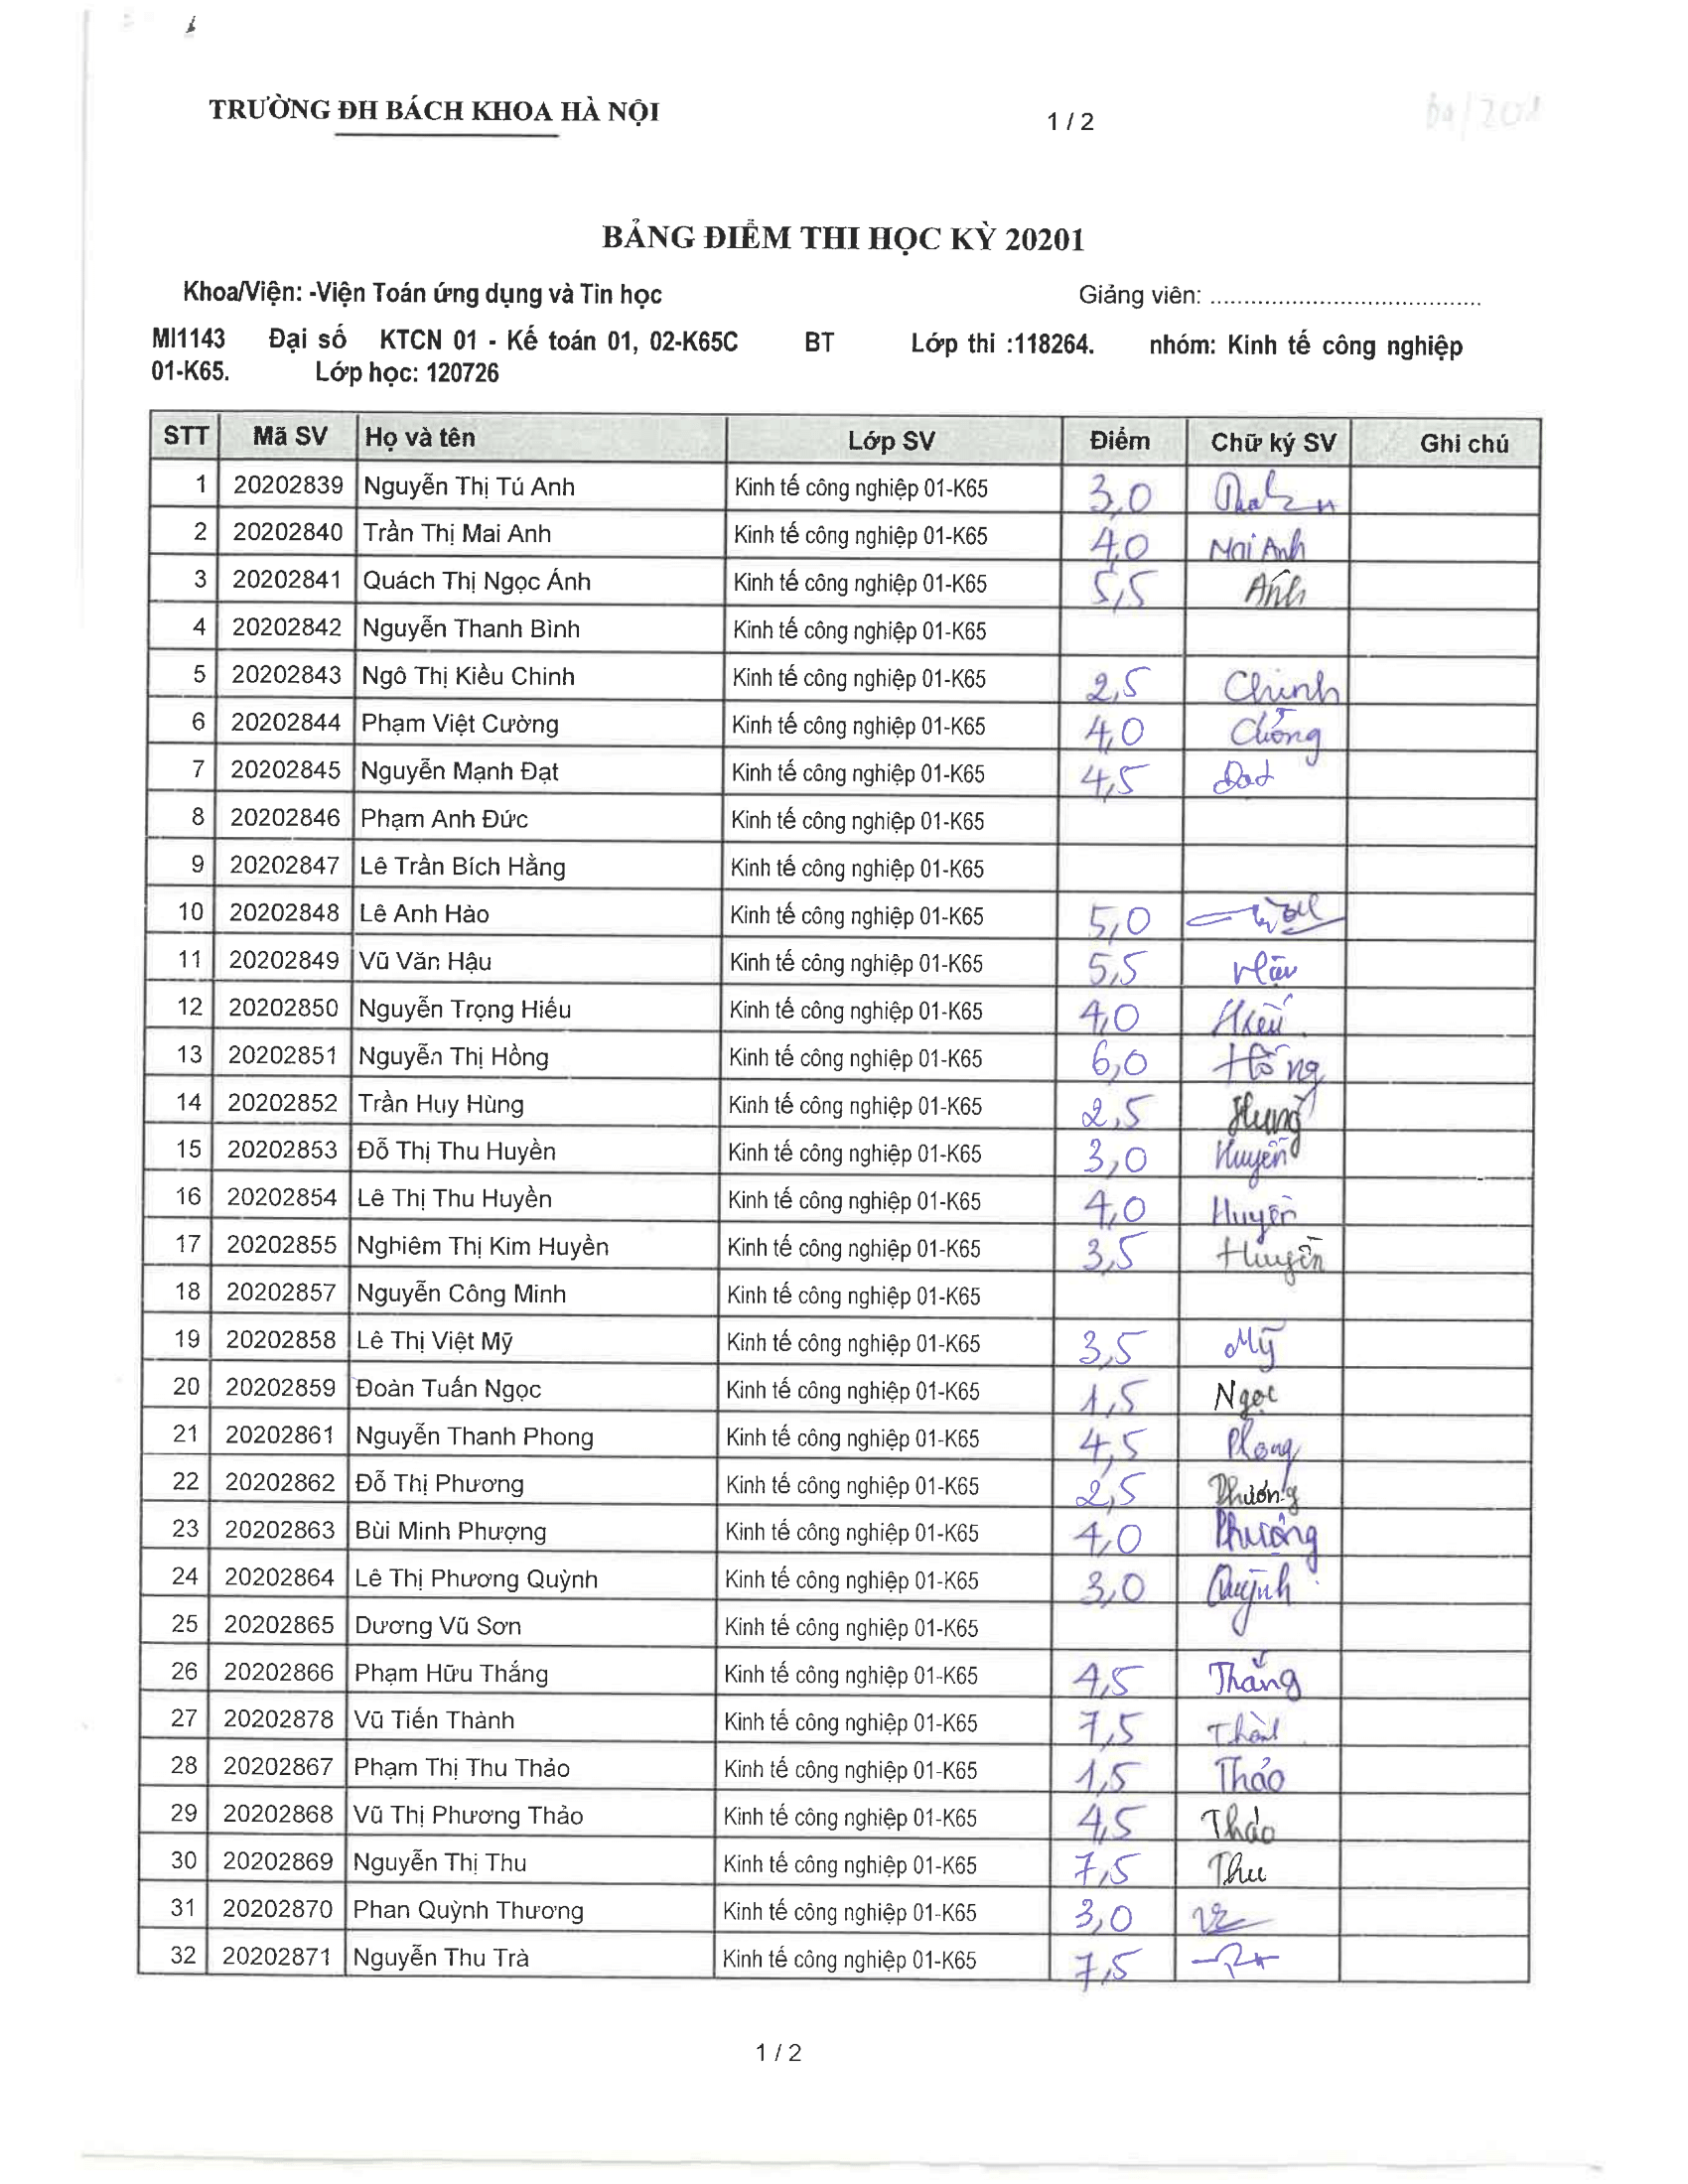 TRƯỜNG ĐH BÁCH KHOA HÀ NỘI
1 / 2
BẢNG ĐIỂM THI HỌC KỲ 20201
Khoa/Viện: -Viện Toán ứng dụng và Tin học Giảng viên: ........................................
MI1143 Đại số KTCN 01 - Kế toán 01, 02-K65C BT Lớp thi :118264. nhóm: Kinh tế công nghiệp
01-K65. Lớp học: 120726
STT Mã SV Họ và tên Lớp SV Điểm Chữ ký SV Ghi chú
1 20202839 Nguyễn Thị Tú Anh Kinh tế công nghiệp 01-K65 3,0
2 20202840 Trần Thị Mai Anh Kinh tế công nghiệp 01-K65 4,0 Mai Anh
3 20202841 Quách Thị Ngọc Ánh Kinh tế công nghiệp 01-K65 5,5 Ánh
4 20202842 Nguyễn Thanh Bình Kinh tế công nghiệp 01-K65
5 20202843 Ngô Thị Kiều Chinh Kinh tế công nghiệp 01-K65 2,5 Chinh
6 20202844 Phạm Việt Cường Kinh tế công nghiệp 01-K65 4,0
7 20202845 Nguyễn Mạnh Đạt Kinh tế công nghiệp 01-K65 4,5 Đạt
8 20202846 Phạm Anh Đức Kinh tế công nghiệp 01-K65
9 20202847 Lê Trần Bích Hằng Kinh tế công nghiệp 01-K65
10 20202848 Lê Anh Hào Kinh tế công nghiệp 01-K65 5,0
11 20202849 Vũ Văn Hậu Kinh tế công nghiệp 01-K65 5,5 Hậu
12 20202850 Nguyễn Trọng Hiếu Kinh tế công nghiệp 01-K65 4,0 Hiếu
13 20202851 Nguyễn Thị Hồng Kinh tế công nghiệp 01-K65 6,0 Hồng
14 20202852 Trần Huy Hùng Kinh tế công nghiệp 01-K65 2,5 Hùng
15 20202853 Đỗ Thị Thu Huyền Kinh tế công nghiệp 01-K65 3,0 Huyền
16 20202854 Lê Thị Thu Huyền Kinh tế công nghiệp 01-K65 4,0 Huyền
17 20202855 Nghiêm Thị Kim Huyền Kinh tế công nghiệp 01-K65 3,5 Huyền
18 20202857 Nguyễn Công Minh Kinh tế công nghiệp 01-K65
19 20202858 Lê Thị Việt Mỹ Kinh tế công nghiệp 01-K65 3,5 Mỹ
20 20202859 Đoàn Tuấn Ngọc Kinh tế công nghiệp 01-K65 1,5 Ngọc
21 20202861 Nguyễn Thanh Phong Kinh tế công nghiệp 01-K65 4,5 Phong
22 20202862 Đỗ Thị Phương Kinh tế công nghiệp 01-K65 2,5 Phương
23 20202863 Bùi Minh Phượng Kinh tế công nghiệp 01-K65 4,0 Phượng
24 20202864 Lê Thị Phương Quỳnh Kinh tế công nghiệp 01-K65 3,0 Quỳnh
25 20202865 Dương Vũ Sơn Kinh tế công nghiệp 01-K65
26 20202866 Phạm Hữu Thắng Kinh tế công nghiệp 01-K65 4,5 Thắng
27 20202878 Vũ Tiến Thành Kinh tế công nghiệp 01-K65 7,5
28 20202867 Phạm Thị Thu Thảo Kinh tế công nghiệp 01-K65 1,5 Thảo
29 20202868 Vũ Thị Phương Thảo Kinh tế công nghiệp 01-K65 4,5 Thảo
30 20202869 Nguyễn Thị Thu Kinh tế công nghiệp 01-K65 7,5 Thu
31 20202870 Phan Quỳnh Thương Kinh tế công nghiệp 01-K65 3,0
32 20202871 Nguyễn Thu Trà Kinh tế công nghiệp 01-K65 7,5
1 / 2